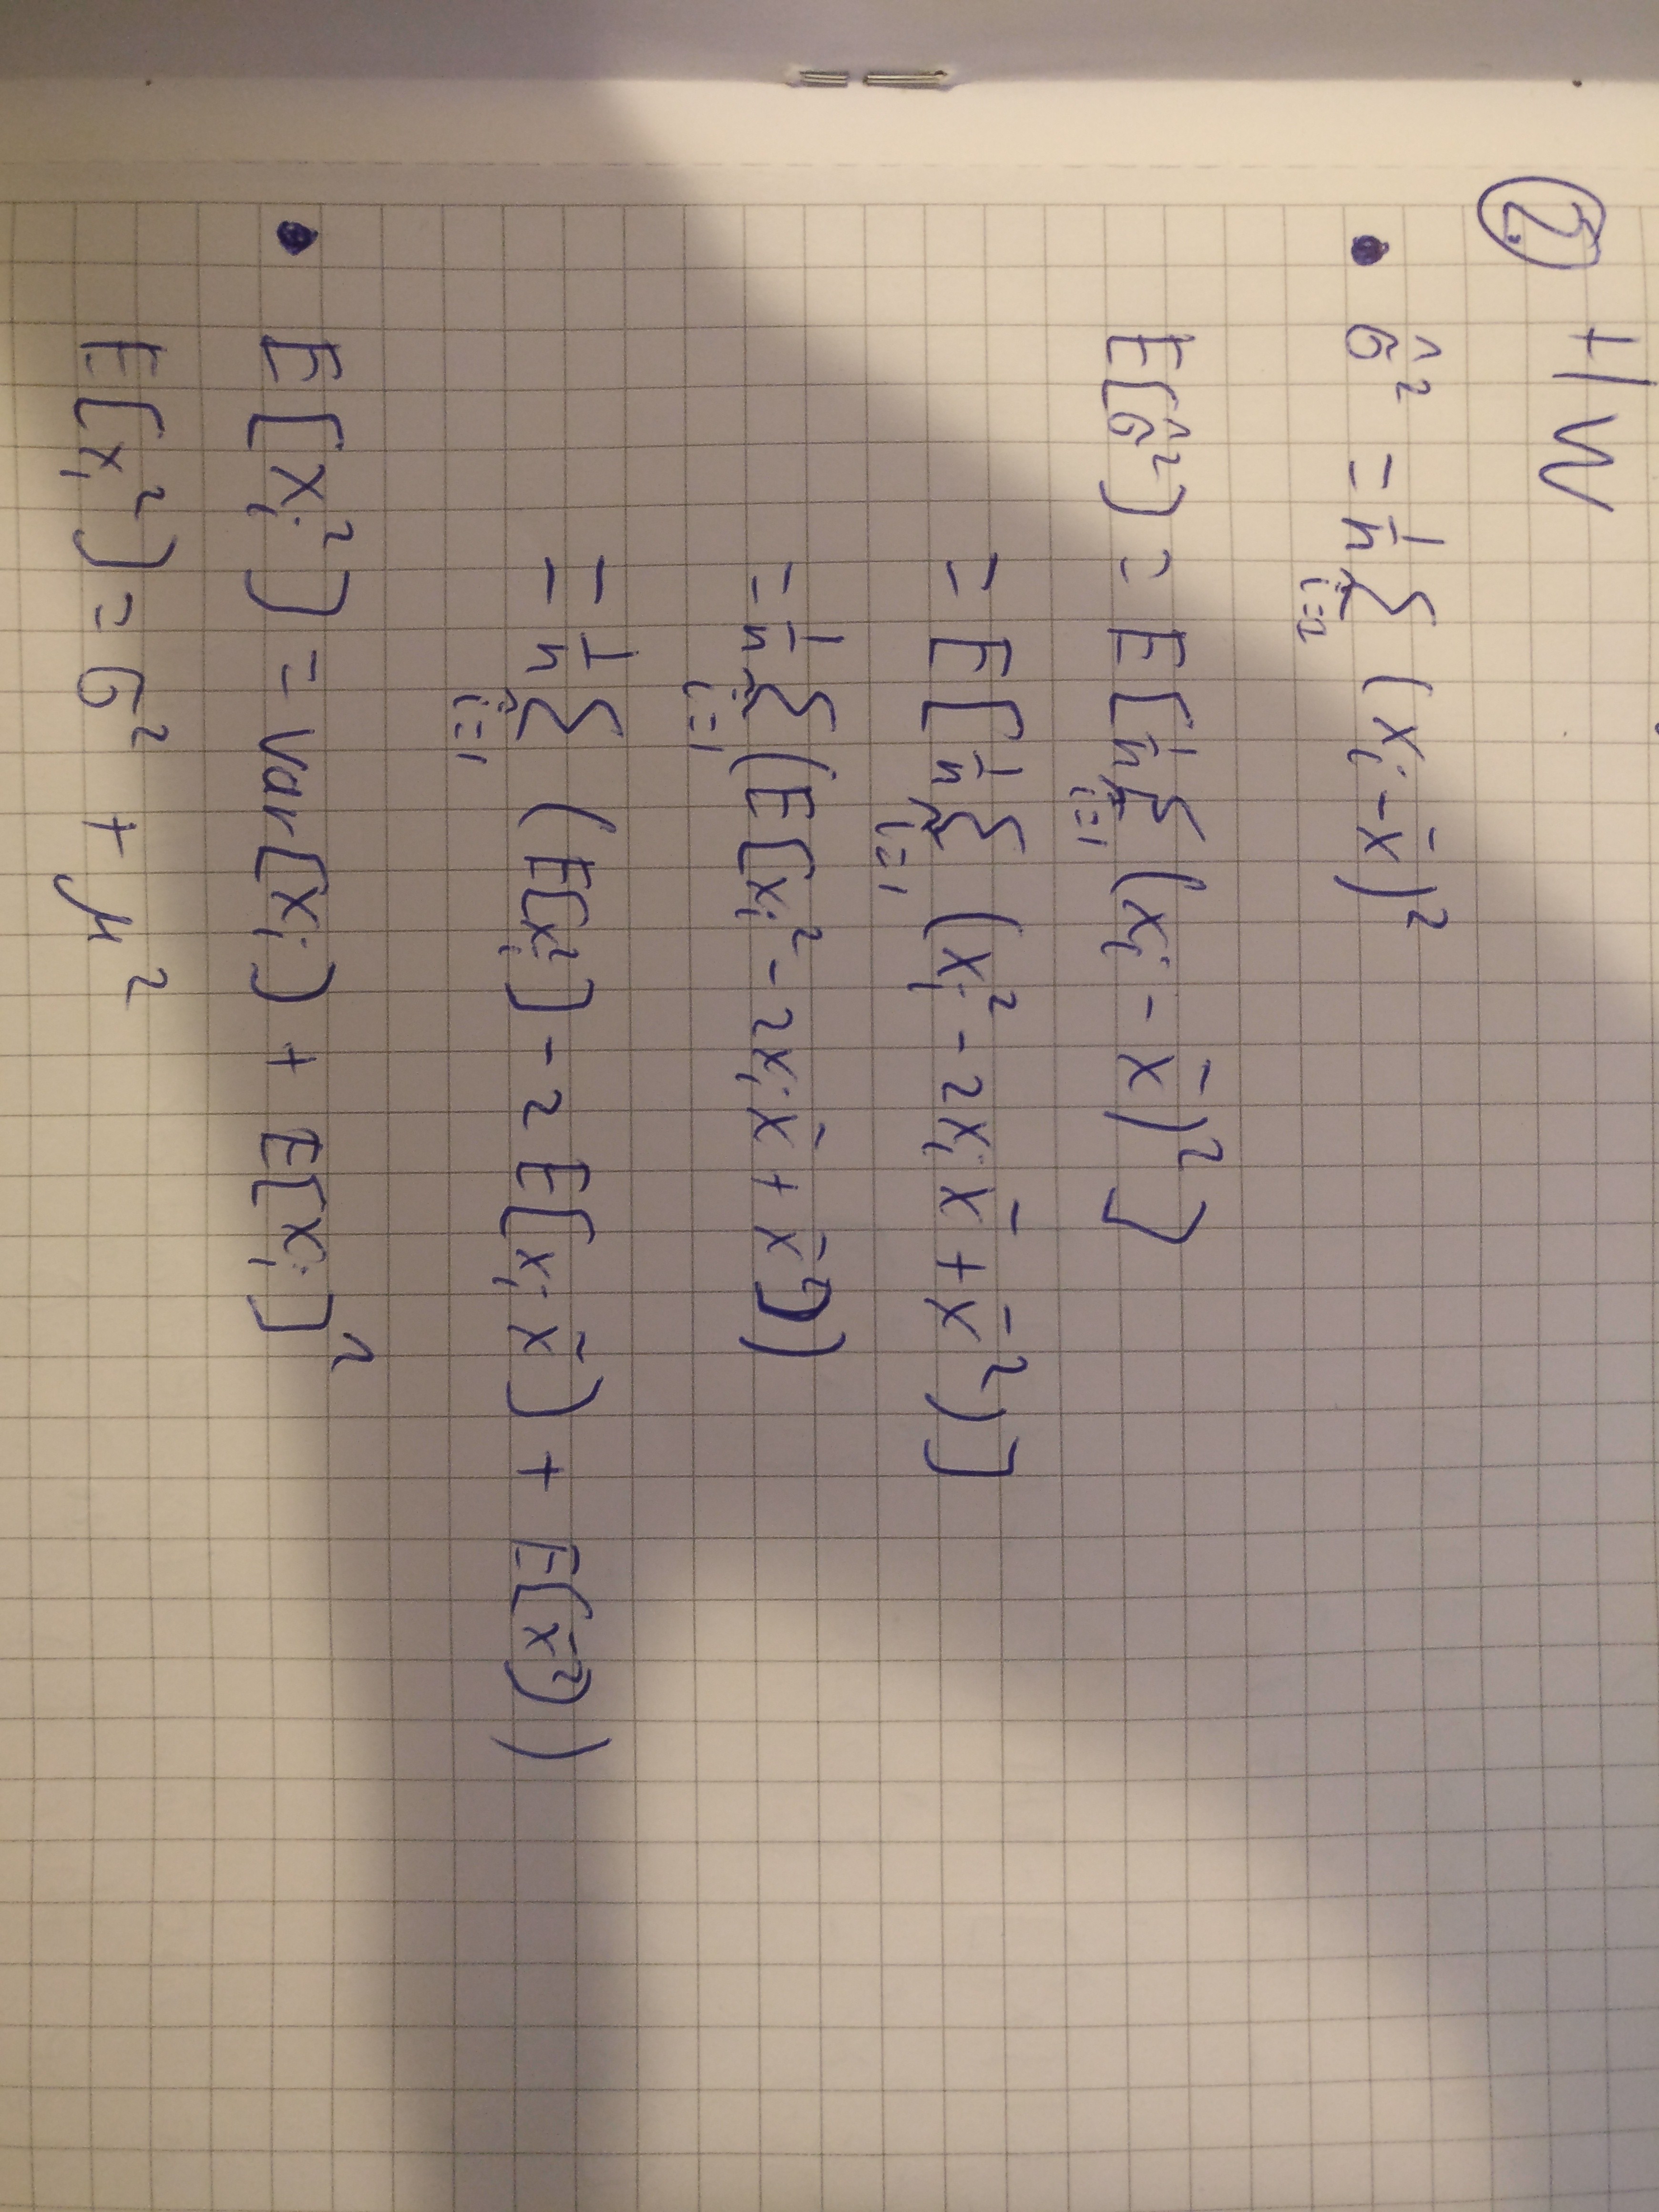 ② HW
• σ̂² = 1/n Σ_{i=1} (x_i - x̄)²
E[σ̂²] = E[1/n Σ_{i=1} (x_i - x̄)²]
= E[1/n Σ_{i=1} (x_i² - 2x_i x̄ + x̄²)]
= 1/n Σ_{i=1} (E[x_i² - 2x_i x̄ + x̄²])
= 1/n Σ_{i=1} (E[x_i²] - 2 E[x_i x̄] + E[x̄²])
• E[x_i²] = var[x_i] + E[x_i]²
E[x_i²] = σ² + μ²